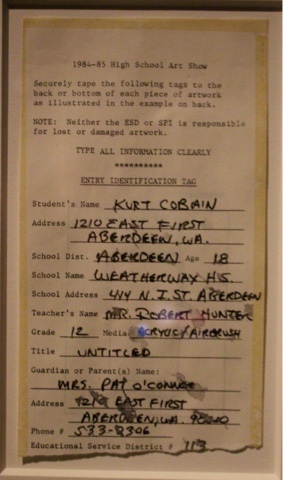 1984-85 High School Art Show
Securely tape the following tags to the
back or bottom of each piece of artwork
as illustrated in the example on back.
NOTE: Neither the ESD or SPI is responsible
for lost or damaged artwork.
TYPE ALL INFORMATION CLEARLY
**********
ENTRY IDENTIFICATION TAG
Student's Name KURT COBAIN
Address 1210 EAST FIRST
ABERDEEN, WA.
School Dist. ABERDEEN Age 18
School Name WEATHERWAX H.S.
School Address 414 N. I ST. ABERDEEN
Teacher's Name MR. ROBERT HUNTER
Grade 12 Media ACRYLIC/AIRBRUSH
Title UNTITLED
Guardian or Parent(s) Name:
MRS. PAT O'CONNOR
Address 1210 EAST FIRST
ABERDEEN, WA. 98520
Phone # 533-2306
Educational Service District # 113